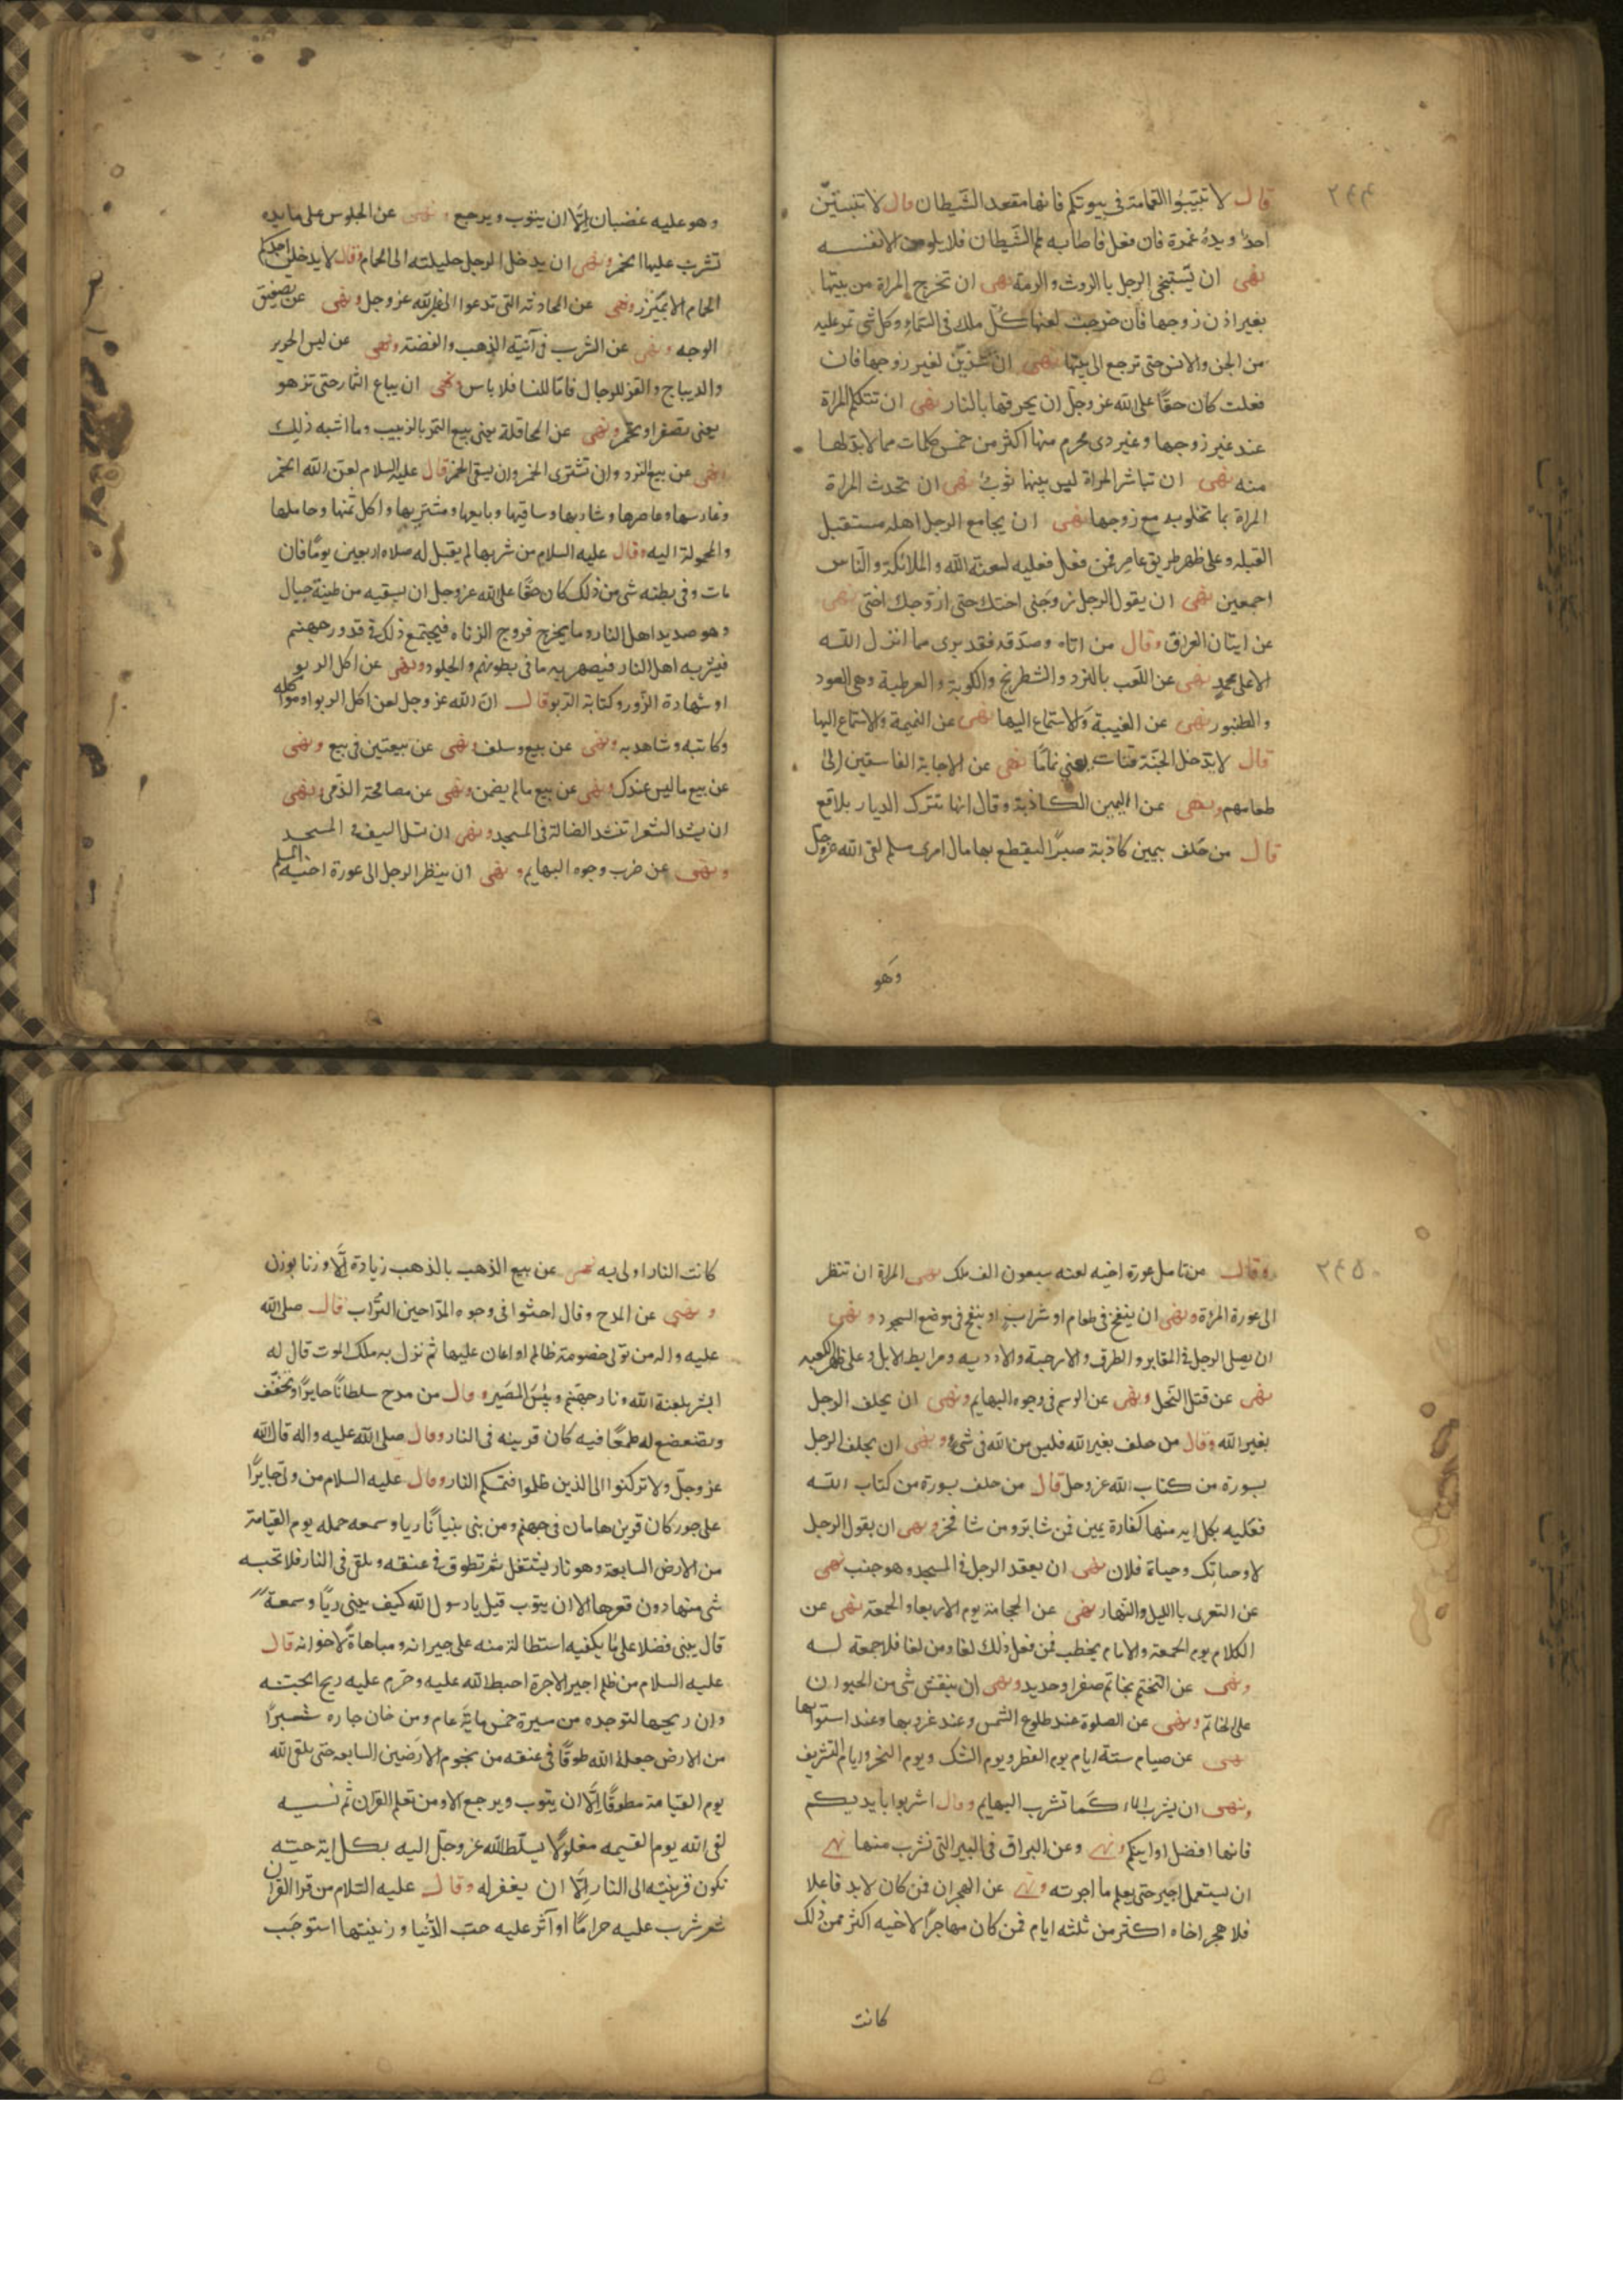 ٢٤٤
قال لا تبيتوا القمامة في بيوتكم فانها مقعد الشيطان قال لا تبيتنّ
احد ويده غمرة فان فعل فاصابه لمم الشّيطان فلا يلومن الا نفسه
نهى ان يستنجى الرجل بالروث والرمة نهى ان تخرج المراة من بيتها
بغير اذن زوجها فان خرجت لعنها كلّ ملك فى السّماء وكل شى تمر عليه
من الجن والانس حتى ترجع الى بيتها نهى ان تتزيّن لغير زوجها فان
فعلت كان حقّا على الله عز وجلّ ان يحرقها بالنار نهى ان تتكلم المراة
عند غير زوجها وغير ذى محرم منها اكثر من خمس كلمات مما لا بد لها
منه نهى ان تباشر المراة ليس بينها ثوب نهى ان تحدث المراة
المراة بما تخلو به مع زوجها نهى ان يجامع الرجل اهله مستقبل
القبله وعلى ظهر طريق عامر فمن فعل فعليه لعنة الله والملائكة والنّاس
اجمعين نهى ان يقول الرجل زوجنى اختك حتى ازوجك اختى نهى
عن ايتان العراق وقال من اتاه وصدّقه فقد برى مما انزل الله
الا على محمد نهى عن اللعب بالنرد والشطرنج والكوبة والعرطبة وهى العود
والطنبور نهى عن الغيبة والاستماع اليها نهى عن النميمة والاستماع اليها
قال لا يدخل الجنّة قتات يعني نمامًا نهى عن الاجابة الفاسقين الى
طعامهم ونهى عن اليمين الكاذبة وقال انها تترك الديار بلاقع
قال من حلف بيمين كاذبة صبرًا ليقطع بها مال امرى مسلم لقى الله عز وجلّ
وهو
وهو عليه غضبان الّا ان يتوب ويرجع ونهى عن الجلوس على مايده
تشرب عليها الخمر ونهى ان يدخل الرجل حليلته الى الحمام وقال لا يدخلن احدكم
الحمام الا بميزر ونهى عن المحادثه التى تدعوا الى غير الله عز وجل ونهى عن تصفيق
الوجه ونهى عن الشرب فى آنية الذهب والفضة ونهى عن لبس الحرير
والديباج والقز للرجال فامّا للنسا فلا باس ونهى ان يباع الثمار حتى تزهو
يعنى تصفر او تحمر ونهى عن المحاقلة يعنى بيع التمر بالزبيب وما اشبه ذلك
ونهى عن بيع النرد وان تشترى الخمر وان يسقى الخمر قال عليه السلام لعن الله الخمر
وغارسها وعاصرها وشاربها وساقيها وبايعها ومشتريها واكل ثمنها وحاملها
والمحمولة اليه وقال عليه السلام من شربها لم يقبل له صلاه اربعين يومًا فان
مات وفى بطنه شى من ذلك كان حقّا على الله عز وجل ان يسقيه من طينة خبال
وهو صديد اهل النار وما يخرج فروج الزناه فيجتمع ذلك فى قدور جهنم
فيشربه اهل النار فيصهر به ما فى بطونهم والجلود ونهى عن اكل الربو
او شهادة الزور وكتابة الربو قال انّ الله عز وجل لعن اكل الربو او موكله
وكاتبه وشاهديه ونهى عن بيع وسلف ونهى عن بيعتين فى بيع ونهى
عن بيع ما ليس عندك ونهى عن بيع مالم يضمن ونهى عن مصافحة الذّمى ونهى
ان ينشد الشعر او تنشد الضالة فى المسجد ونهى ان تسل السيف فى المسجد
ونهى عن ضرب وجوه البهايم ونهى ان ينظر الرجل الى عورة اخيه المسلم
٢٤٥
وقال من تامل عورة اخيه لعنه سبعون الف ملك نهى المراة ان تنظر
الى عورة المراة ونهى ان ينفخ فى طعام او شراب او ينفخ فى موضع السجود ونهى
ان يصلى الرجل فى المقابر والطرق والارحبة والاوديه ومرابط الابل وعلى ظهر الكعبه
نهى عن قتل النّحل ونهى عن الوسم فى وجوه البهايم ونهى ان يحلف الرجل
بغير الله وقال من حلف بغير الله فليس من الله فى شى ونهى ان يحلف الرجل
بسورة من كتاب الله عز وجل قال من حلف بسورة من كتاب الله
فعليه بكل ايه منها كفارة يمين فمن شا بر ومن شا فجر ونهى ان يقول الرجل
لا وحياتك وحياة فلان نهى ان يقعد الرجل فى المسجد وهو جنب نهى
عن التعرى بالليل والنّهار نهى عن الحجامة يوم الاربعا والجمعة نهى عن
الكلام يوم الجمعة والامام يخطب فمن فعل ذلك لغا ومن لغا فلا جمعة له
ونهى عن التختم بخاتم صفر او حديد ونهى ان ينقش شى من الحيوان
على الخاتم ونهى عن الصلوة عند طلوع الشمس وعند غروبها وعند استوائها
نهى عن صيام ستة ايام يوم الفطر ويوم الشك ويوم النحر وايام التشريق
ونهى ان يشرب الماء كما تشرب البهايم وقال اشربوا بايديكم
فانها افضل اوانيكم ونهى وعن البزاق فى البير التى تشرب منها نهى
ان يستعمل اجير حتى يعلم ما اجرته ونهى عن الهجران فمن كان لا بد فاعلا
فلا هجر اخاه اكثر من ثلثه ايام فمن كان مهاجرًا لاخيه اكثر من ذلك
كانت
كانت النار اولى به نهى عن بيع الذهب بالذهب زيادة الّا وزنا بوزن
ونهى عن المدح وقال احثوا فى وجوه المدّاحين التّراب قال صلى الله
عليه واله من تولى خصومة ظالم او اعان عليها ثم نزل به ملك الموت قال له
ابشر بلعنة الله ونار جهنّم وبئس المصير وقال من مدح سلطانًا جايرًا وتخفّف
وتضعضع له طمعًا فيه كان قرينه فى النار وقال صلى الله عليه واله قال الله
عز وجلّ ولا تركنوا الى الذين ظلموا فتمسكم النار وقال عليه السلام من ولى جايرًا
على جور كان قرين هامان فى جهنم ومن بنى بنيانًا ريا وسمعه حمله يوم القيامة
من الارض السابعة وهو نار يشتعل ثم تطوق فى عنقه ويلقى فى النار فلا تحبسه
شى منها دون قعرها الا ان يتوب قيل يا رسول الله كيف يبنى ريًا وسمعة
قال يبنى فضلا على ما يكفيه استطالة منه على جيرانه ومباهاةً لاخوانه قال
عليه السلام من ظلم اجير الاجرة احبط الله عليه وحرّم عليه ريح الجنة
وان ريحها لتوجده من مسيرة خمس ماية عام ومن خان جاره شبرًا
من الارض جعله الله طوقًا فى عنقه من نجوم الارضين السابعه حتى يلقى الله
يوم القيامة مطوقًا الّا ان يتوب ويرجع الا ومن تعلم القران ثم نسيه
لقى الله يوم القيمه مغلولًا يسلّط الله عز وجلّ اليه بكل اية حية
تكون قرينته الى النار الّا ان يغفر له وقال عليه السّلام من قرا القران
ثم شرب عليه حرامًا او آثر عليه حب الدّنيا وزينتها استوجب